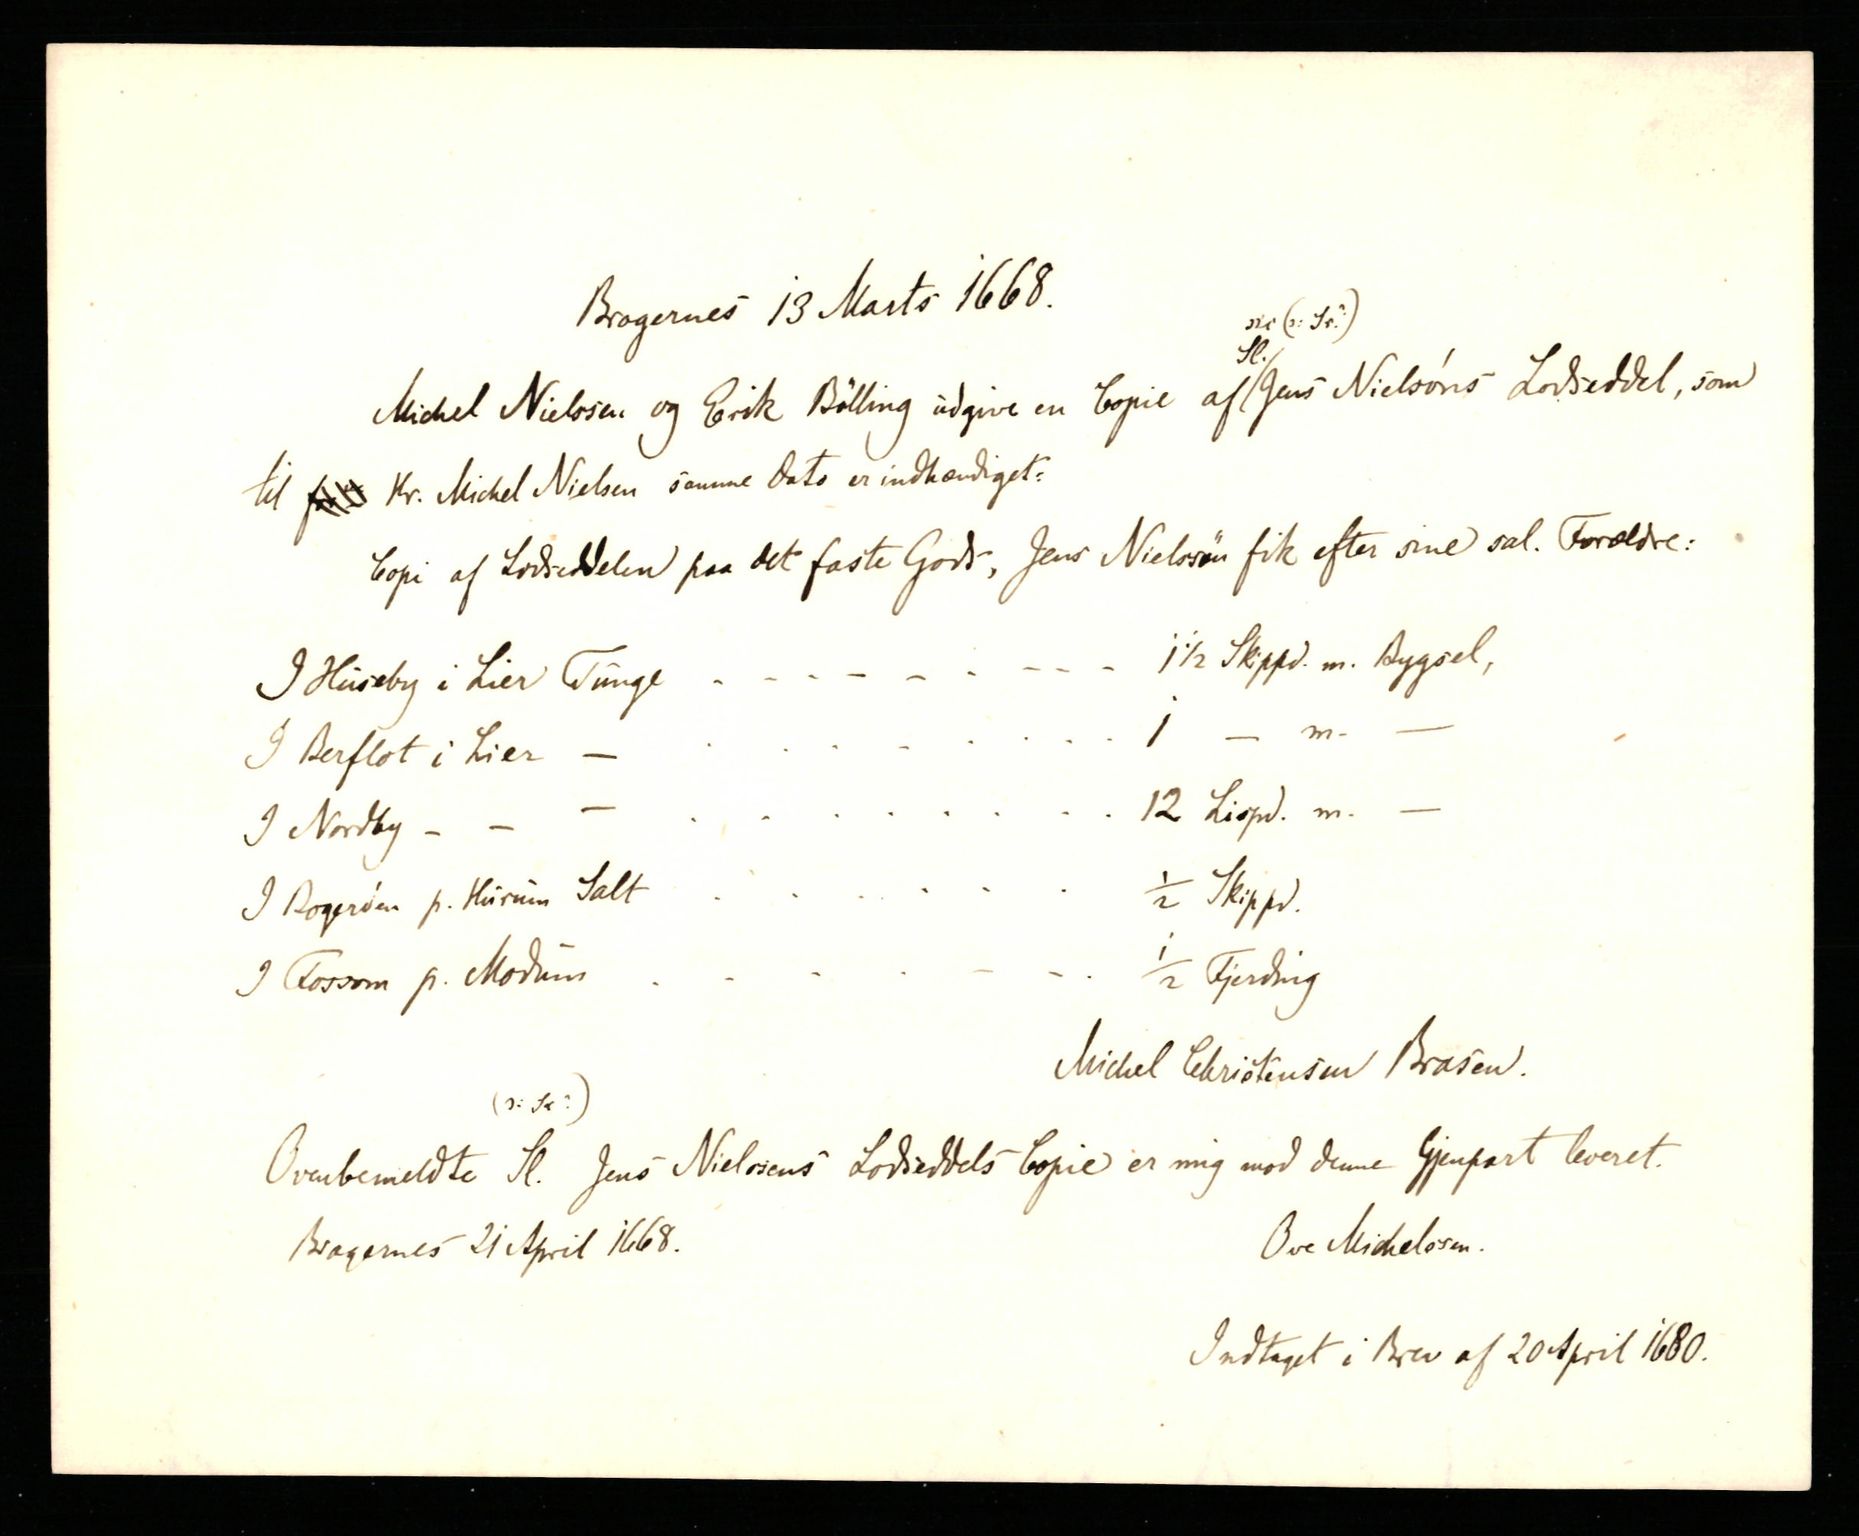 Bragernes 13 Marts 1668.
sic (ɔ: Sr?)
Sl.
Michel Nielssen og Erik Bölling udgive en Copie af Jens Nielsöns Lodseddel, som
til Hr. Michel Nielsen samme Dato er indhændiget:
Copi af Lodseddelen paa det faste Gods, Jens Nielssön fik efter sine sal. Forældre:
I Huseby i Lier Tunge . - - - - - . - - - 1 1/2 Skippd. m. Bygsel,
I Berflot i Lier — . . . . . . . . 1 — m. —
I Nordby - - — . . . . . . . . 12 Lispd. m. —
I Rogeröen p. Hurum Salt . . . . . . . 1/2 Skippd.
I Fossom p. Modum . - - . - - . 1/2 Fjerding
Michel Christensen Brasen.
(ɔ: Sr?)
Ovenbemeldte Sl. Jens Nielssens Lodseddels Copie er mig mod denne Gjenpart leveret.
Bragernes 21 April 1668.
Ove Michelssen.
Indtaget i Brev af 20 April 1680.